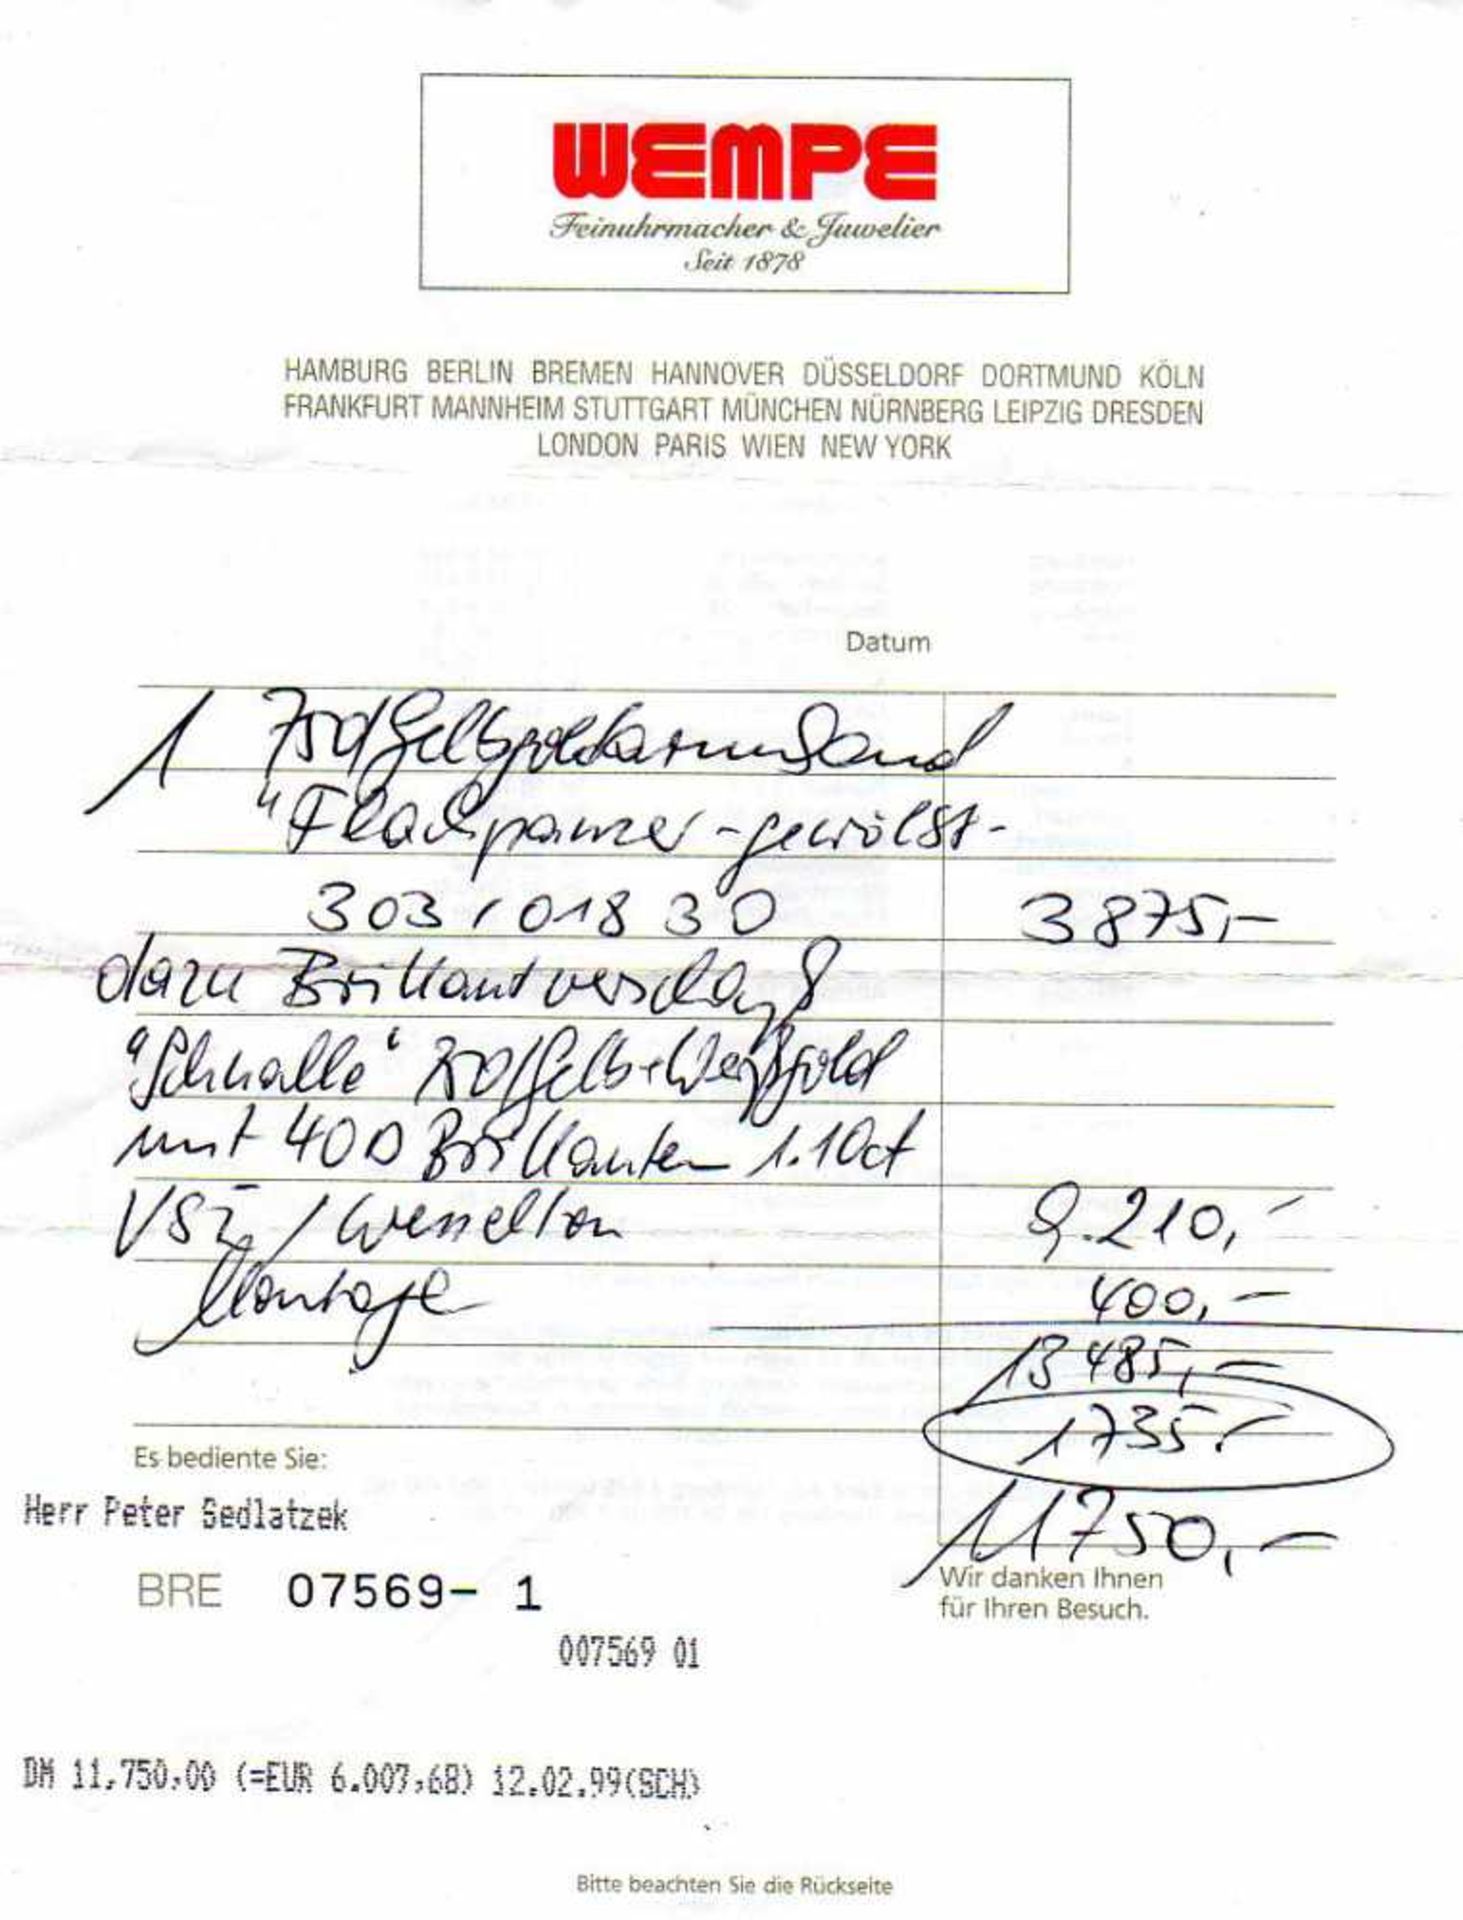 WEMPE
Feinuhrmacher & Juwelier
Seit 1878
HAMBURG BERLIN BREMEN HANNOVER DÜSSELDORF DORTMUND KÖLN
FRANKFURT MANNHEIM STUTTGART MÜNCHEN NÜRNBERG LEIPZIG DRESDEN
LONDON PARIS WIEN NEW YORK
Datum
1 750/Gelbgoldarmband
"Flachpanzer-gewölbt-
303,018 30 3875,-
dazu Brillantverschluß
"Schnalle" 750/Gelb+Weißgold
mit 400 Brillanten 1.10ct
VSI / Wesselton 9.210,-
Montage 400,-
13 485,-
1735,-
Es bediente Sie:
Herr Peter Sedlatzek
11750,-
BRE 07569- 1
Wir danken Ihnen
für Ihren Besuch.
007569 01
DM 11,750,00 (=EUR 6.007,68) 12.02.99(SCH)
Bitte beachten Sie die Rückseite